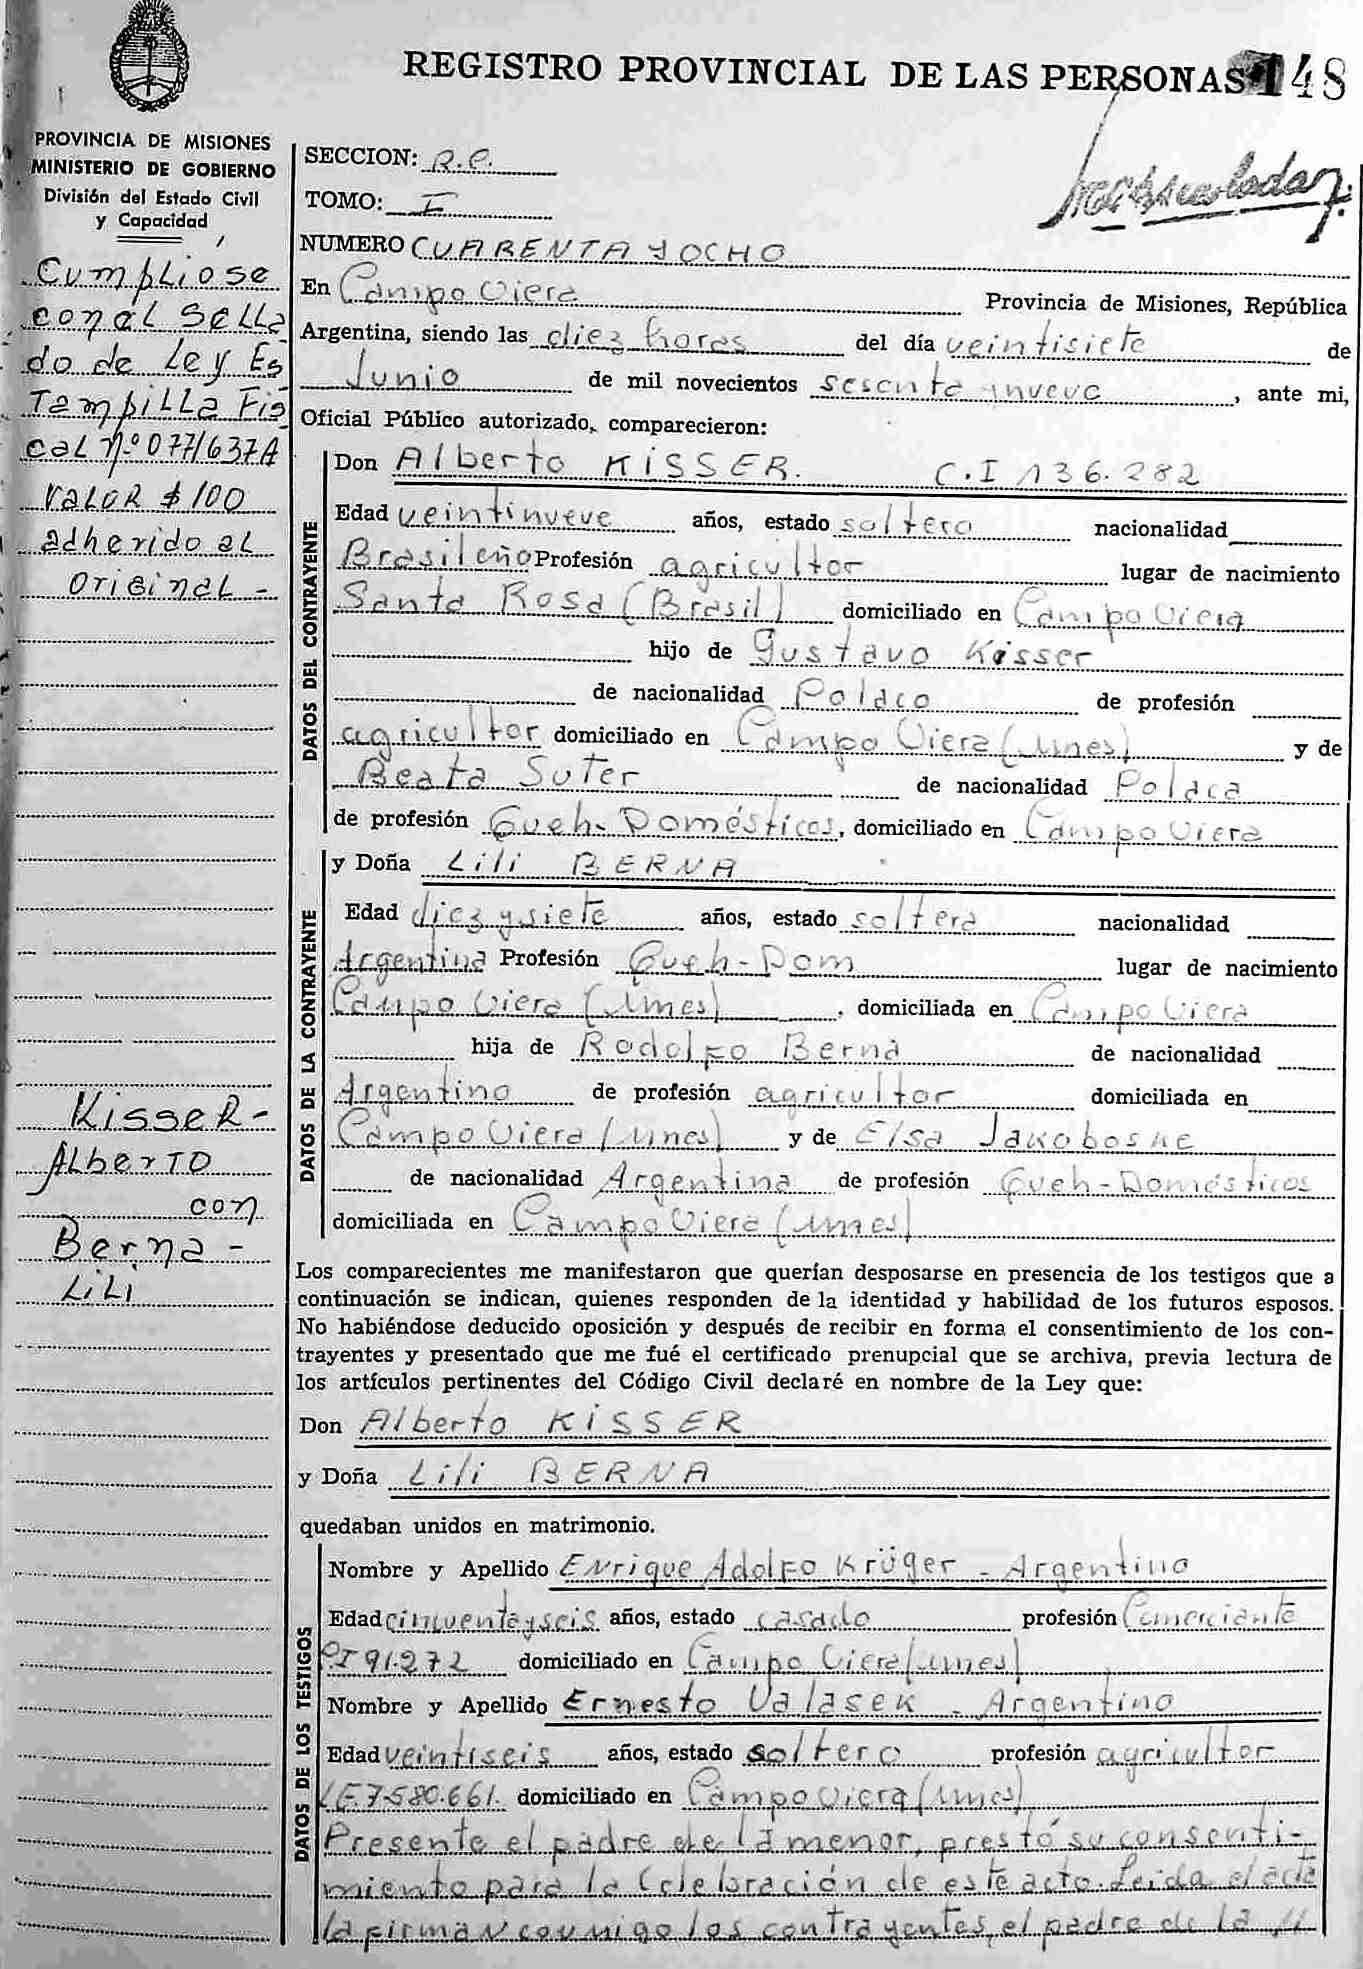 REGISTRO PROVINCIAL DE LAS PERSONAS 148
PROVINCIA DE MISIONES
MINISTERIO DE GOBIERNO
División del Estado Civil
y Capacidad
Cumplióse
con el Sella
do de Ley Es
Tampilla Fis
cal n.º 077/637A
valor $100
adherido al
original -
Kisser -
Alberto
con
Berna -
Lili
SECCION: R.C.
TOMO: I
NUMERO CUARENTA Y OCHO
En Campo Viera Provincia de Misiones, República
Argentina, siendo las diez horas del día veintisiete de
Junio de mil novecientos sesenta y nueve, ante mi,
Oficial Público autorizado, comparecieron:
DATOS DEL CONTRAYENTE
Don Alberto KISSER. C.I 136.282
Edad veintinueve años, estado soltero nacionalidad
Brasileño Profesión agricultor lugar de nacimiento
Santa Rosa (Brasil) domiciliado en Campo Viera
hijo de Gustavo Kisser
de nacionalidad Polaco de profesión
agricultor domiciliado en Campo Viera (Mnes) y de
Beata Suter de nacionalidad Polaca
de profesión Queh. Domésticos, domiciliado en Campo Viera
DATOS DE LA CONTRAYENTE
y Doña Lili BERNA
Edad diez y siete años, estado soltera nacionalidad
Argentina Profesión Queh-Dom lugar de nacimiento
Campo Viera (Mnes), domiciliada en Campo Viera
hija de Rodolfo Berna de nacionalidad
Argentino de profesión agricultor domiciliada en
Campo Viera (Mnes) y de Elsa Jakoboske
de nacionalidad Argentina de profesión Queh-Domésticos
domiciliada en Campo Viera (Mnes)
Los comparecientes me manifestaron que querían desposarse en presencia de los testigos que a
continuación se indican, quienes responden de la identidad y habilidad de los futuros esposos.
No habiéndose deducido oposición y después de recibir en forma el consentimiento de los con-
trayentes y presentado que me fué el certificado prenupcial que se archiva, previa lectura de
los artículos pertinentes del Código Civil declaré en nombre de la Ley que:
Don Alberto KISSER
y Doña Lili BERNA
quedaban unidos en matrimonio.
DATOS DE LOS TESTIGOS
Nombre y Apellido Enrique Adolfo Krüger - Argentino
Edad cincuenta y seis años, estado casado profesión Comerciante
C.I 91.272 domiciliado en Campo Viera (Mnes)
Nombre y Apellido Ernesto Valasek - Argentino
Edad veintiseis años, estado soltero profesión agricultor
L.E. 7.580.661. domiciliado en Campo Viera (Mnes)
Presente el padre de la menor, prestó su consenti-
miento para la celebración de este acto. Leida el acta
la firman conmigo los contrayentes, el padre de la